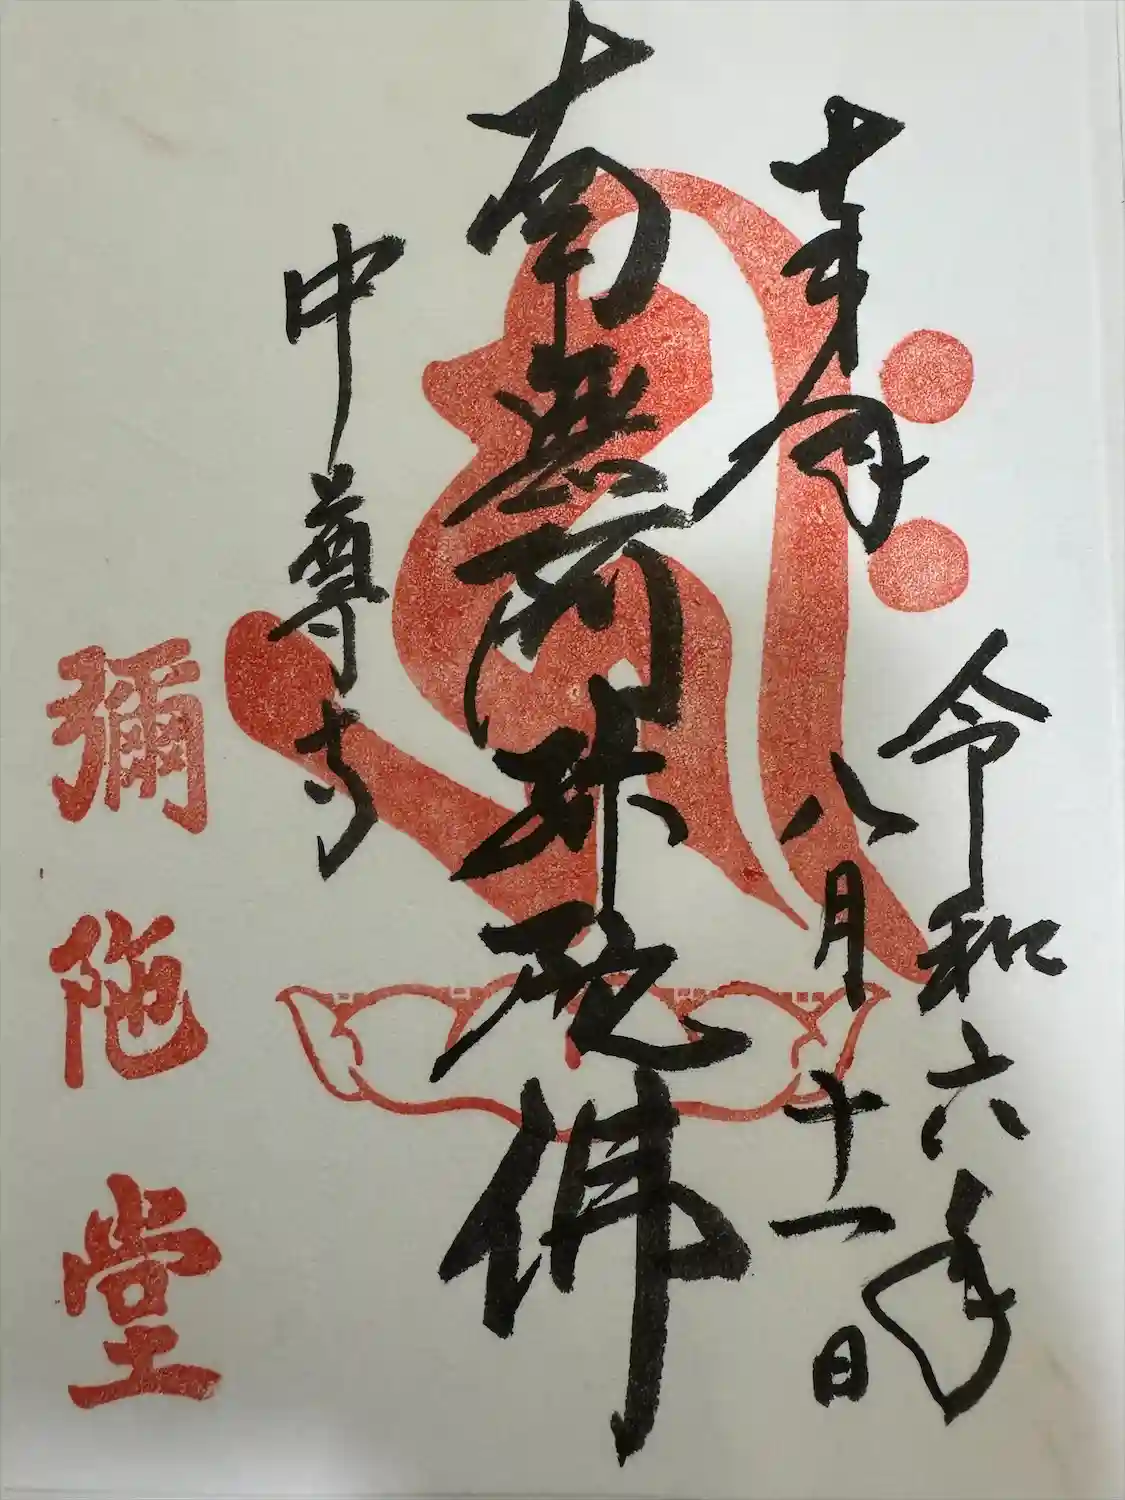 令和六年
奉拝
八月十一日
南無阿弥陀佛
中尊寺
彌陀堂